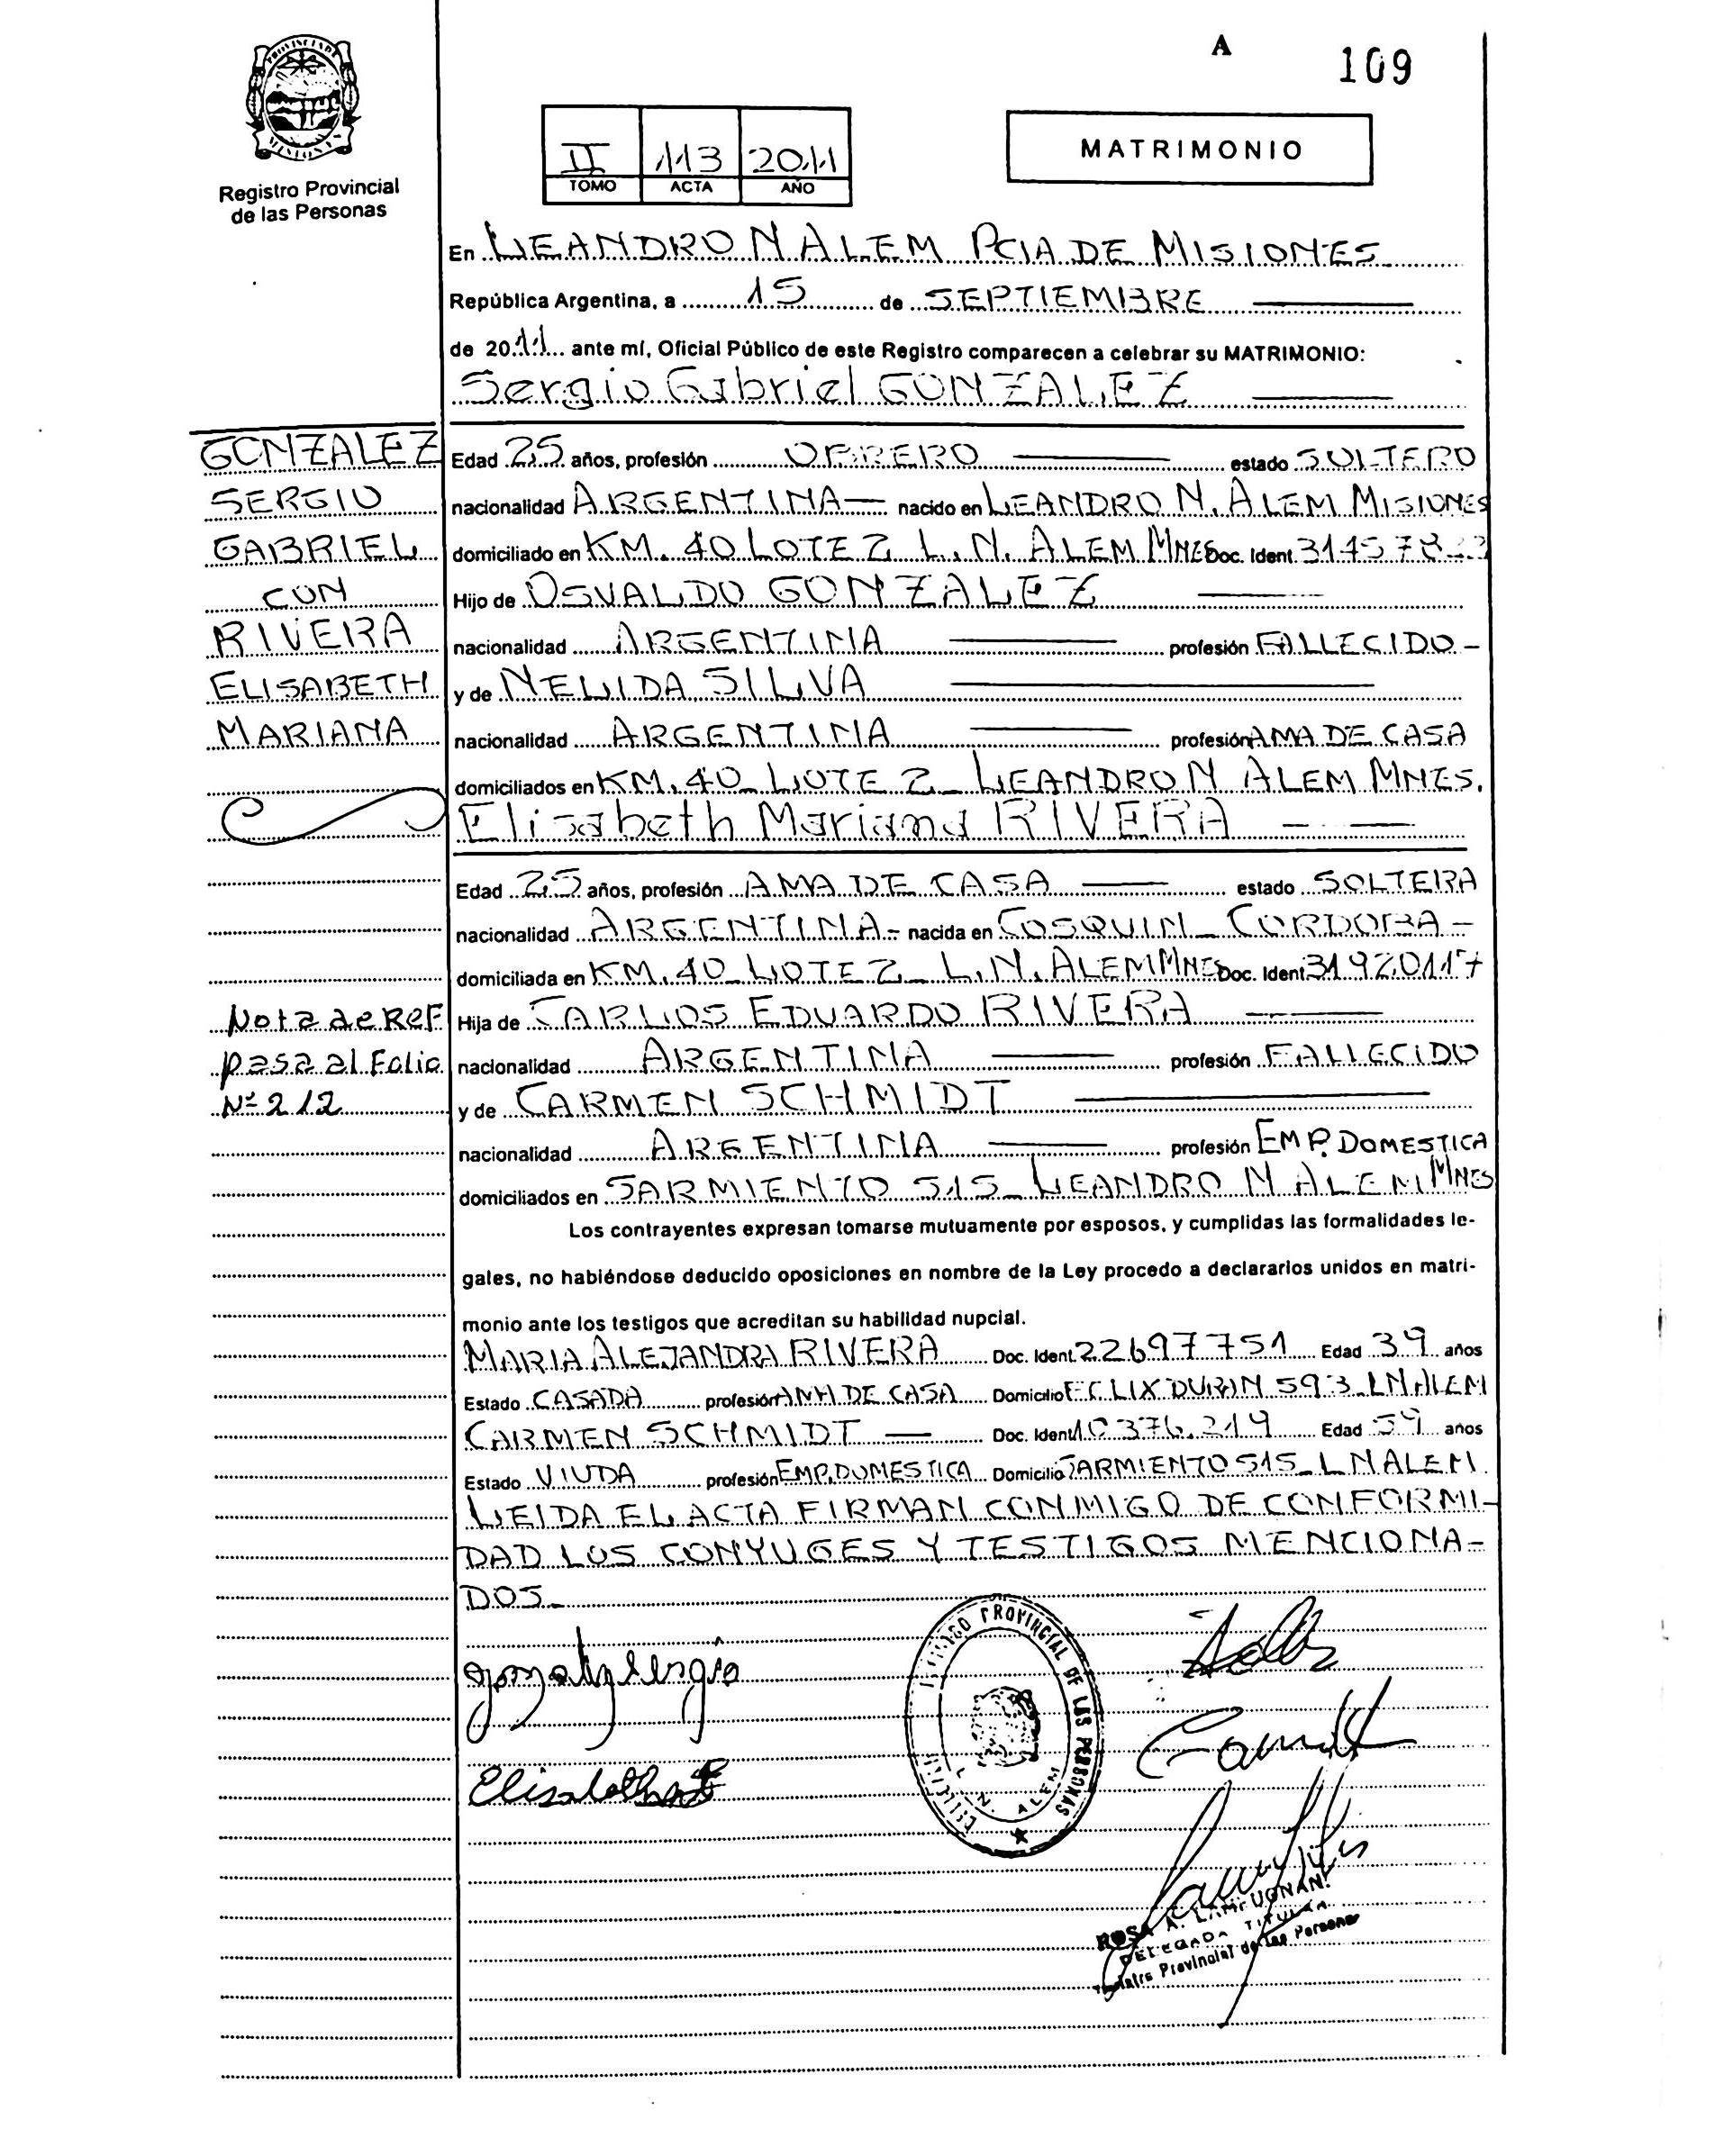 A 109
PROVINCIA DE MISIONES
Registro Provincial
de las Personas
II 113 2011
TOMO ACTA AÑO
MATRIMONIO
En LEANDRO N ALEM PCIA DE MISIONES
República Argentina, a 15 de SEPTIEMBRE
de 2011 ante mí, Oficial Público de este Registro comparecen a celebrar su MATRIMONIO:
Sergio Gabriel GONZALEZ
GONZALEZ
SERGIO
GABRIEL
CON
RIVERA
ELISABETH
MARIANA
Edad 25 años, profesión OBRERO estado SOLTERO
nacionalidad ARGENTINA nacido en LEANDRO N. ALEM MISIONES
domiciliado en KM. 40 LOTE 2 L.N. ALEM MNES Doc. Ident.
Hijo de OSVALDO GONZALEZ
nacionalidad ARGENTINA profesión FALLECIDO -
y de NELIDA SILVA
nacionalidad ARGENTINA profesión AMA DE CASA
domiciliados en KM. 40_ LOTE 2_ LEANDRO N ALEM MNES.
Elisabeth Mariana RIVERA
Edad 25 años, profesión AMA DE CASA estado SOLTERA
nacionalidad ARGENTINA - nacida en COSQUIN_ CORDOBA -
domiciliada en KM. 40_ LOTE 2_ L.N. ALEM MNES Doc. Ident 31920117
Hija de CARLOS EDUARDO RIVERA
nacionalidad ARGENTINA profesión FALLECIDO
y de CARMEN SCHMIDT
nacionalidad ARGENTINA profesión EMP. DOMESTICA
domiciliados en SARMIENTO 515_ LEANDRO N ALEM MNES
Nota de REF
pasa al Folio
Nº 212
Los contrayentes expresan tomarse mutuamente por esposos, y cumplidas las formalidades le-
gales, no habiéndose deducido oposiciones en nombre de la Ley procedo a declararlos unidos en matri-
monio ante los testigos que acreditan su habilidad nupcial.
MARIA ALEJANDRA RIVERA Doc. Ident. 22697751 Edad 39 años
Estado CASADA profesión AMA DE CASA Domicilio FELIX DURAN 593_ LN ALEM
CARMEN SCHMIDT Doc. Ident. 10376.219 Edad 59 años
Estado VIUDA profesión EMP. DOMESTICA Domicilio SARMIENTO 515_ L N ALEM
LEIDA EL ACTA FIRMAN CONMIGO DE CONFORMI-
DAD LOS CONYUGES Y TESTIGOS MENCIONA-
DOS_
gonzalez sergio
PROVINCIAL DE LAS PERSONAS
L. N. ALEM
ROSA A. LAMPUGNANI
DELEGADA TITULAR
Registro Provincial de las Personas